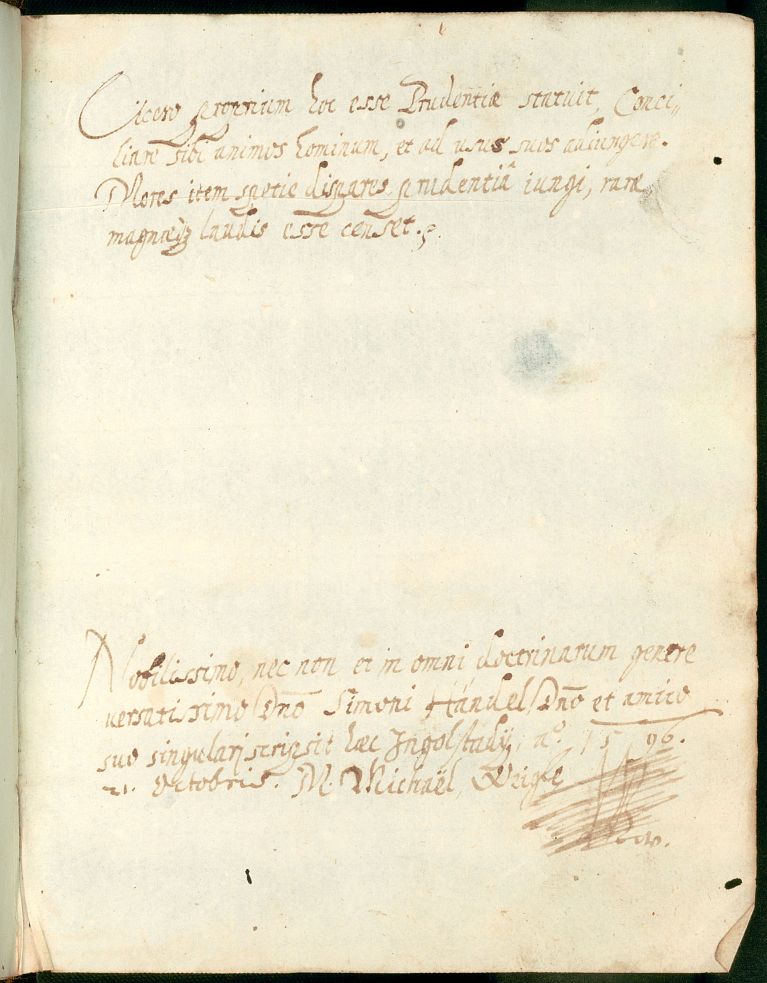 Cicero proprium hoc esse Prudentiæ statuit, Conci„
liare sibi animos hominum, et ad usus suos adiungere.
Mores item spetie dispares prudentiâ iungi, raræ
magnæqꝫ laudis esse censet.
Nobilissimo, nec non et in omni doctrinarum genere
versatissimo Dnō Simoni Händel Dnō et amico
suo singularj scripsit hæc Ingolstadij, aº. 1596.
21. Octobris. M. Michaël